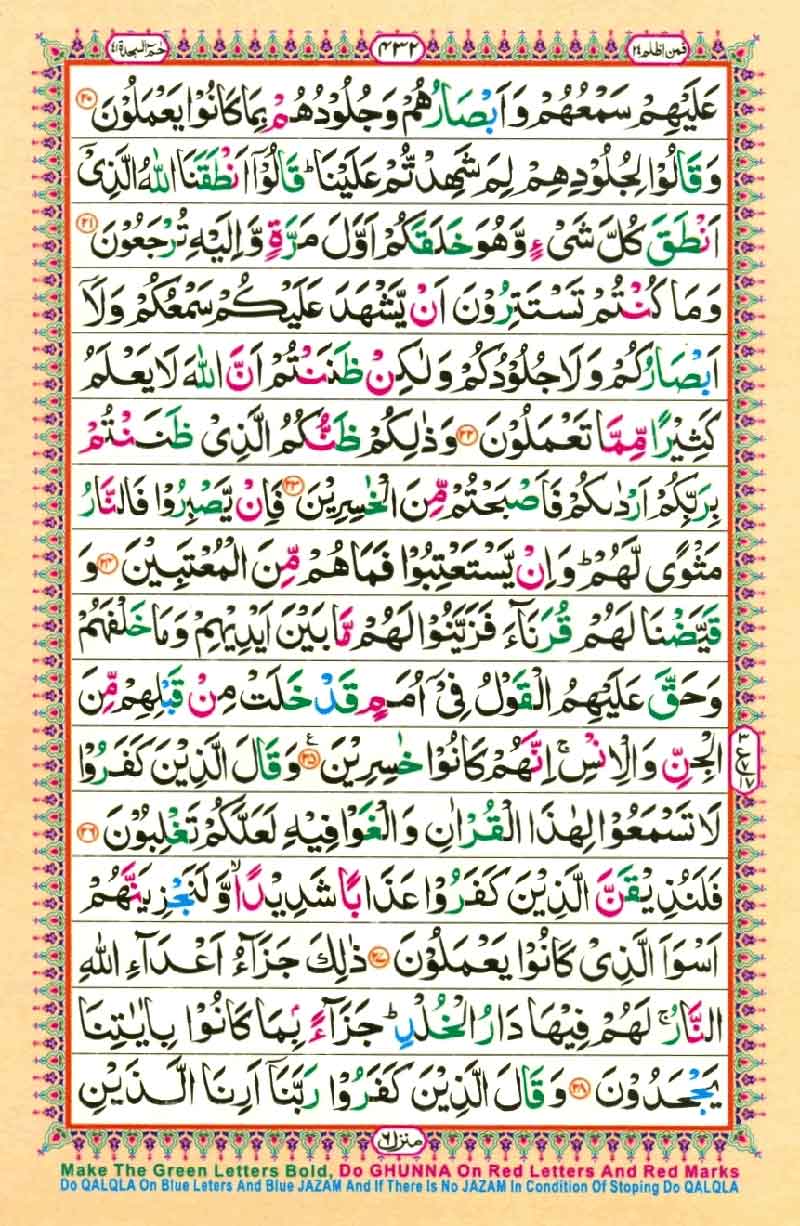 فمن اظلم ٢٤ ٤٣٢ حٰمٓ السجدة ٤١
عَلَيْهِمْ سَمْعُهُمْ وَ اَبْصَارُهُمْ وَ جُلُوْدُهُمْ بِمَا كَانُوْا يَعْمَلُوْنَ ٢٠
وَ قَالُوْا لِجُلُوْدِهِمْ لِمَ شَهِدْتُّمْ عَلَيْنَا ؕ قَالُوْۤا اَنْطَقَنَا اللّٰهُ الَّذِیْۤ
اَنْطَقَ كُلَّ شَیْءٍ وَّ هُوَ خَلَقَكُمْ اَوَّلَ مَرَّةٍ وَّ اِلَيْهِ تُرْجَعُوْنَ ٢١
وَ مَا كُنْتُمْ تَسْتَتِرُوْنَ اَنْ يَّشْهَدَ عَلَيْكُمْ سَمْعُكُمْ وَ لَاۤ
اَبْصَارُكُمْ وَ لَا جُلُوْدُكُمْ وَ لٰكِنْ ظَنَنْتُمْ اَنَّ اللّٰهَ لَا يَعْلَمُ
كَثِيْرًا مِّمَّا تَعْمَلُوْنَ ٢٢ وَ ذٰلِكُمْ ظَنُّكُمُ الَّذِیْ ظَنَنْتُمْ
بِرَبِّكُمْ اَرْدٰىكُمْ فَاَصْبَحْتُمْ مِّنَ الْخٰسِرِيْنَ ٢٣ فَاِنْ يَّصْبِرُوْا فَالنَّارُ
مَثْوًی لَّهُمْ ؕ وَ اِنْ يَّسْتَعْتِبُوْا فَمَا هُمْ مِّنَ الْمُعْتَبِيْنَ ٢٤ وَ
قَيَّضْنَا لَهُمْ قُرَنَآءَ فَزَيَّنُوْا لَهُمْ مَّا بَيْنَ اَيْدِيْهِمْ وَ مَا خَلْفَهُمْ
وَ حَقَّ عَلَيْهِمُ الْقَوْلُ فِیْۤ اُمَمٍ قَدْ خَلَتْ مِنْ قَبْلِهِمْ مِّنَ
الْجِنِّ وَ الْاِنْسِ ۚ اِنَّهُمْ كَانُوْا خٰسِرِيْنَ ٢٥ ع وَ قَالَ الَّذِيْنَ كَفَرُوْا
لَا تَسْمَعُوْا لِهٰذَا الْقُرْاٰنِ وَ الْغَوْا فِيْهِ لَعَلَّكُمْ تَغْلِبُوْنَ ٢٦
فَلَنُذِيْقَنَّ الَّذِيْنَ كَفَرُوْا عَذَابًا شَدِيْدًا ۙ وَّ لَنَجْزِيَنَّهُمْ
اَسْوَاَ الَّذِیْ كَانُوْا يَعْمَلُوْنَ ٢٧ ذٰلِكَ جَزَآءُ اَعْدَآءِ اللّٰهِ
النَّارُ ۚ لَهُمْ فِيْهَا دَارُ الْخُلْدِ ؕ جَزَآءًۢ بِمَا كَانُوْا بِاٰيٰتِنَا
يَجْحَدُوْنَ ٢٨ وَ قَالَ الَّذِيْنَ كَفَرُوْا رَبَّنَاۤ اَرِنَا الَّذَيْنِ
منزل ٦
Make The Green Letters Bold, Do GHUNNA On Red Letters And Red Marks
Do QALQLA On Blue Leters And Blue JAZAM And If There Is No JAZAM In Condition Of Stoping Do QALQLA